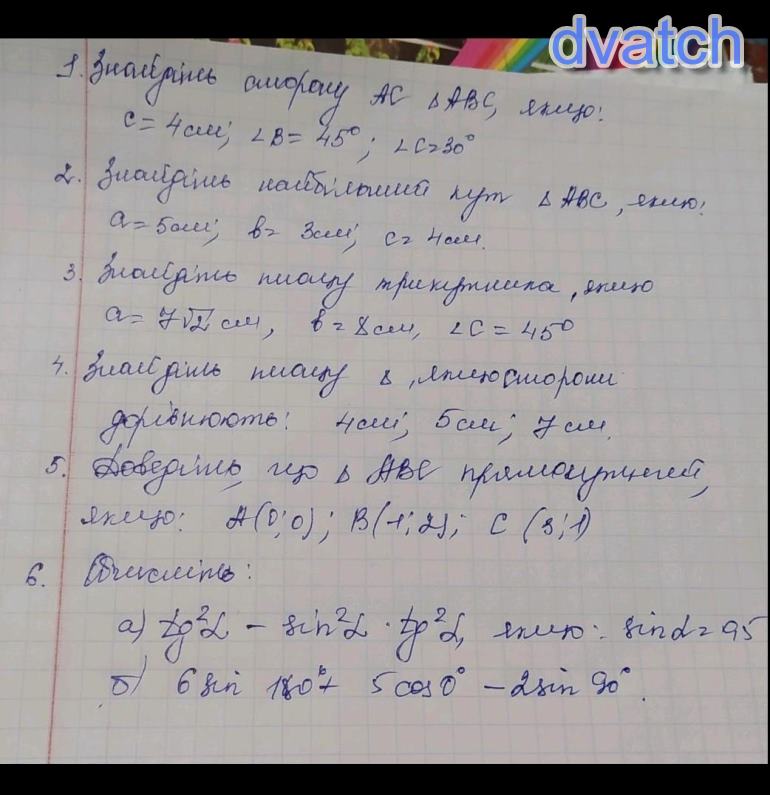 dvatch
1. Знайдіть сторону AC △ABC, якщо:
c = 4см; ∠B = 45°; ∠C = 30°
2. Знайдіть найбільший кут △ABC, якщо:
a = 5см; b = 3см; c = 4см.
3. Знайдіть площу трикутника, якщо
a = 7√2 см, b = 8см, ∠C = 45°
4. Знайдіть площу △, якщо сторони
дорівнюють: 4см; 5см; 7см.
5. Доведіть, що △ABC прямокутний,
якщо: A(0;0); B(1;2); C(3;1)
6. Обчисліть:
а) tg²α - sin²α · tg²α, якщо: sinα = 0,5
б) 6 sin 180° + 5 cos 0° - 2 sin 90°.